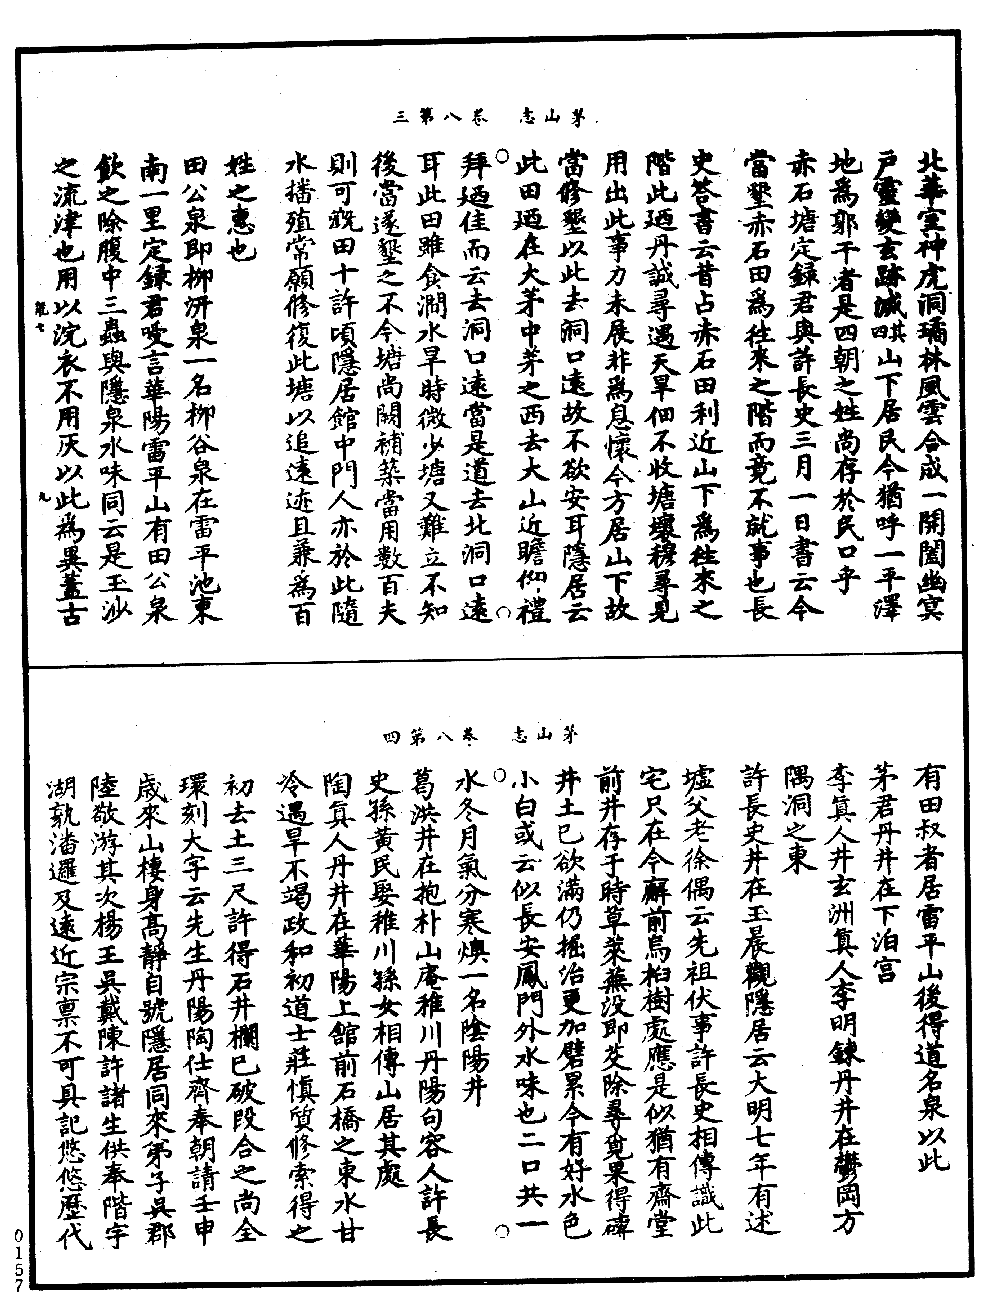 茅山志　卷八第三
北華室神虎洞璚林風雲合成一開闔幽冥
戶靈變玄跡滅䀈山下居民今猶呼一平澤
地爲郭干者是四朝之姓尚存於民口乎
赤石塘定錄君與許長史三月一日書云今
當墾赤石田爲徃來之階而竟不就事也長
史荅書云昔占赤石田利近山下爲徃來之
階此廼丹誠尋遇天旱佃不收塘壞穆尋見
用出此事力未展非爲息懷今方居山下故
當修墾以此去洞口遠故不欲安耳隱居云
此田廼在大茅中茅之西去大山近瞻仰禮
拜廼佳而云去洞口遠當是道去北洞口遠
耳此田雖食澗水旱時微少塘又難立不知
後當遂墾之不今塘尚闕補築當用數百夫
則可溉田十許頃隱居館中門人亦於此隨
水播殖常願修復此塘以追遠迹且兼爲百
姓之惠也
田公泉即栁汧泉一名栁谷泉在雷平池東
南一里定錄君受言華陽雷平山有田公泉
飲之除腹中三蟲與隱泉水味同云是玉沙
之流津也用以浣衣不用灰以此爲異蓋古
龍七　九
茅山志　卷八第四
有田叔者居雷平山後得道名泉以此
茅君丹井在下泊宫
李眞人井玄洲眞人李明鍊丹井在鬱岡方
隅洞之東
許長史井在玉晨觀隱居云大明七年有述
墟父老徐偶云先祖伏事許長史相傳識此
宅只在今廨前烏桕樹處應是似猶有齋堂
前井存于時草萊蕪没即芟除尋覓果得磚
井土已欲滿仍掘治更加甓累今有好水色
小白或云似長安鳳門外水味也二口共一
水冬月氣分寒燠一名陰陽井
葛洪井在抱朴山庵稚川丹陽句容人許長
史孫黃民娶稚川孫女相傳山居其處
陶眞人丹井在華陽上館前石橋之東水甘
冷遇旱不竭政和初道士莊愼質修索得之
初去土三尺許得石井欄已破段合之尚全
環刻大字云先生丹陽陶仕齊奉朝請壬申
歳來山棲身高靜自號隱居同來弟子吳郡
陸敬游其次楊王吳戴陳許諸生供奉階宇
湖孰潘邏及遠近宗禀不可具記悠悠歷代
0157